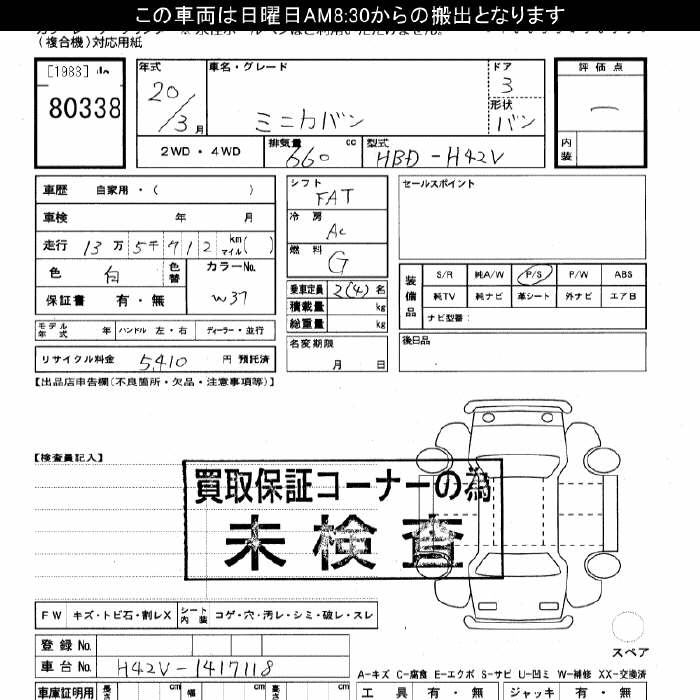 この車両は日曜日AM8:30からの搬出となります
(複合機)対応用紙
[1983]
80338
年式
20/3月
車名・グレード
ミニカバン
ドア
3
形状
バン
評価点
内装
2WD・4WD
排気量
660
cc
型式
HBD-H42V
車歴 自家用・( )
車検 年 月
走行 13万5千912 km マイル( )
色 白 色替
カラーNo.
W37
保証書 有・無
シフト
FAT
冷房
AC
燃料
G
乗車定員 2(4)名
積載量 kg
総重量 kg
名変期限
月 日
モデル年式 年 ハンドル 左・右 ディーラー・並行
リサイクル料金 5,410 円 預託済
セールスポイント
装備品
S/R 純A/W P/S P/W ABS
純TV 純ナビ 革シート 外ナビ エアB
ナビ型番:
後日品
【出品店申告欄(不良箇所・欠品・注意事項等)】
【検査員記入】
買取保証コーナーの為
未検査
FW キズ・トビ石・割レX シート内装 コゲ・穴・汚レ・シミ・破レ・スレ
スペア
登録No.
車台No. H42V-1417118
A-キズ C-腐食 E-エクボ S-サビ U-凹ミ W-補修 XX-交換済
車庫証明用 長さ cm 幅 cm 高さ cm
工具 有・無 ジャッキ 有・無